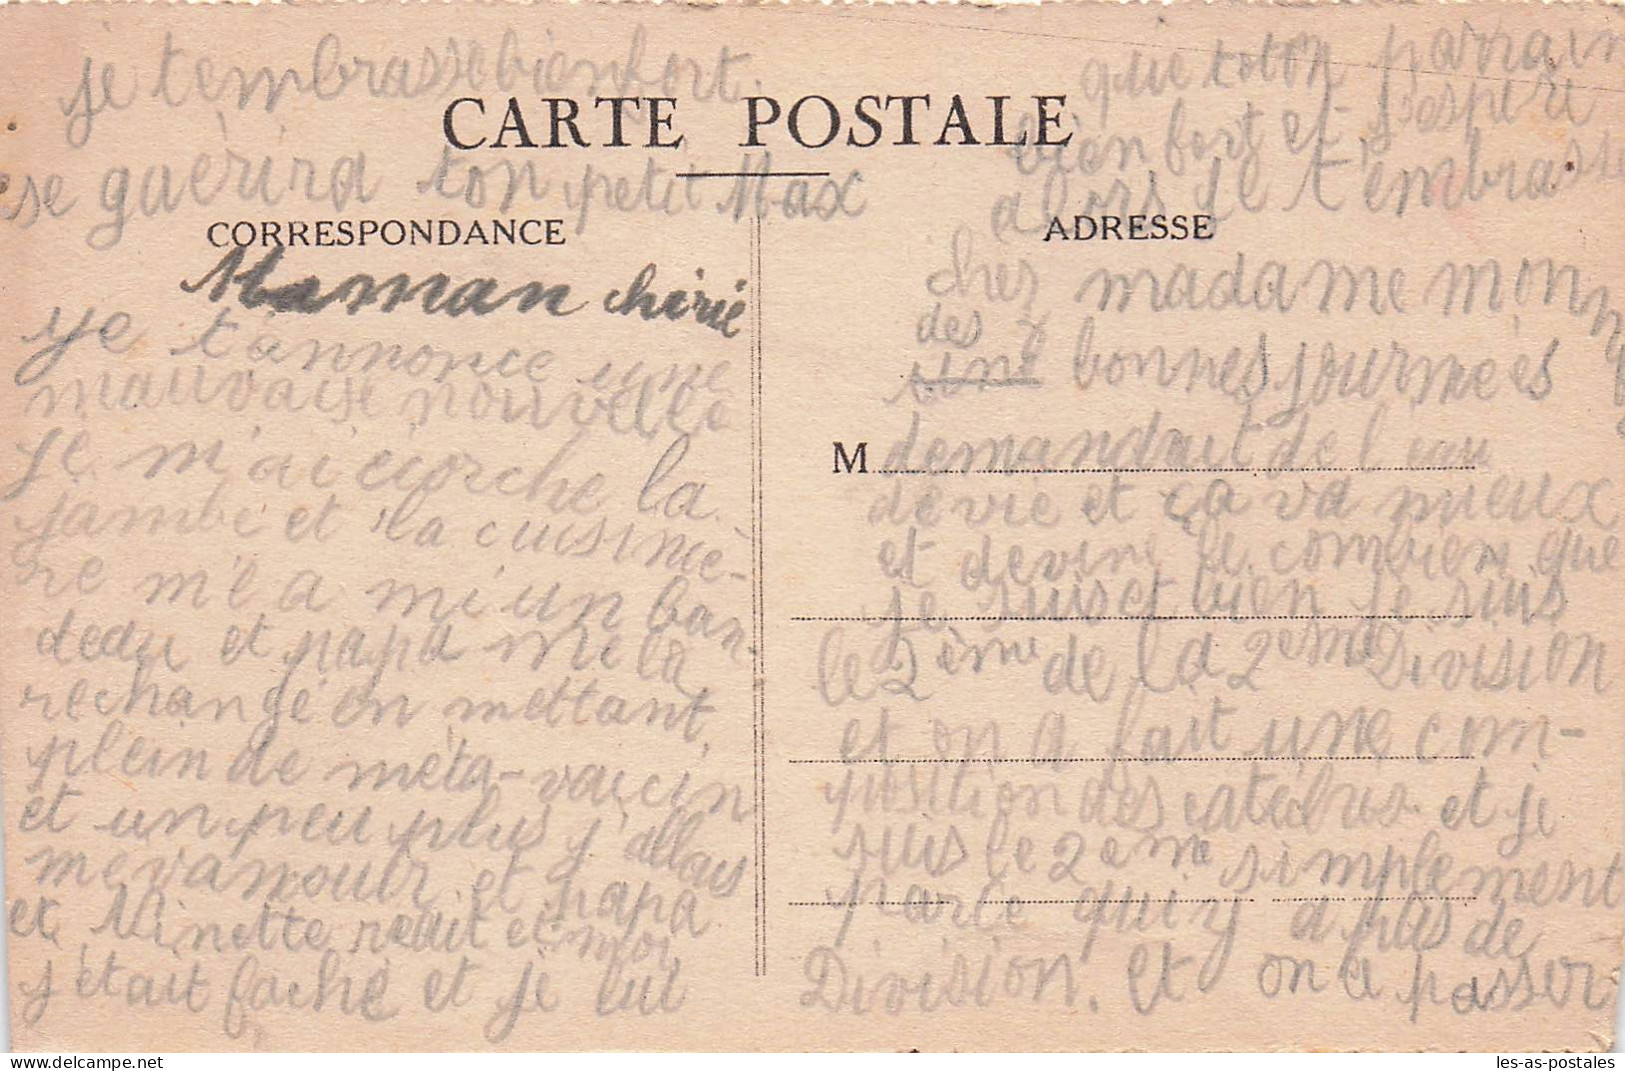 je tembrasse bien fort.
se guérira ton petit Max
que toton parrain
bien fort et j'espère
alors je t'embrasse
CARTE POSTALE
CORRESPONDANCE
Maman chérie
je t'annonce une
mauvaise nouvelle
je m'ai écorche la
jambe et la cuisiniè-
re m'e a mi un ban-
deau et papa me la
rechangé en mettant
plein de méta-vaccin
et un peu plus j'allais
mévanouir et papa
et Ninette et moi
j'était faché et je lui
ADRESSE
chez madame monn
des
bonnes journeés
M demandait de l'eau
de vie et ça va mieux
et devine le combien que
je suis et bien je suis
le 2ème de la 2ème Division
et on a fait une com-
position des et je
suis le 2ème simplement
parce qu'iy a plus de
Division. et on a passer
les-as-postales